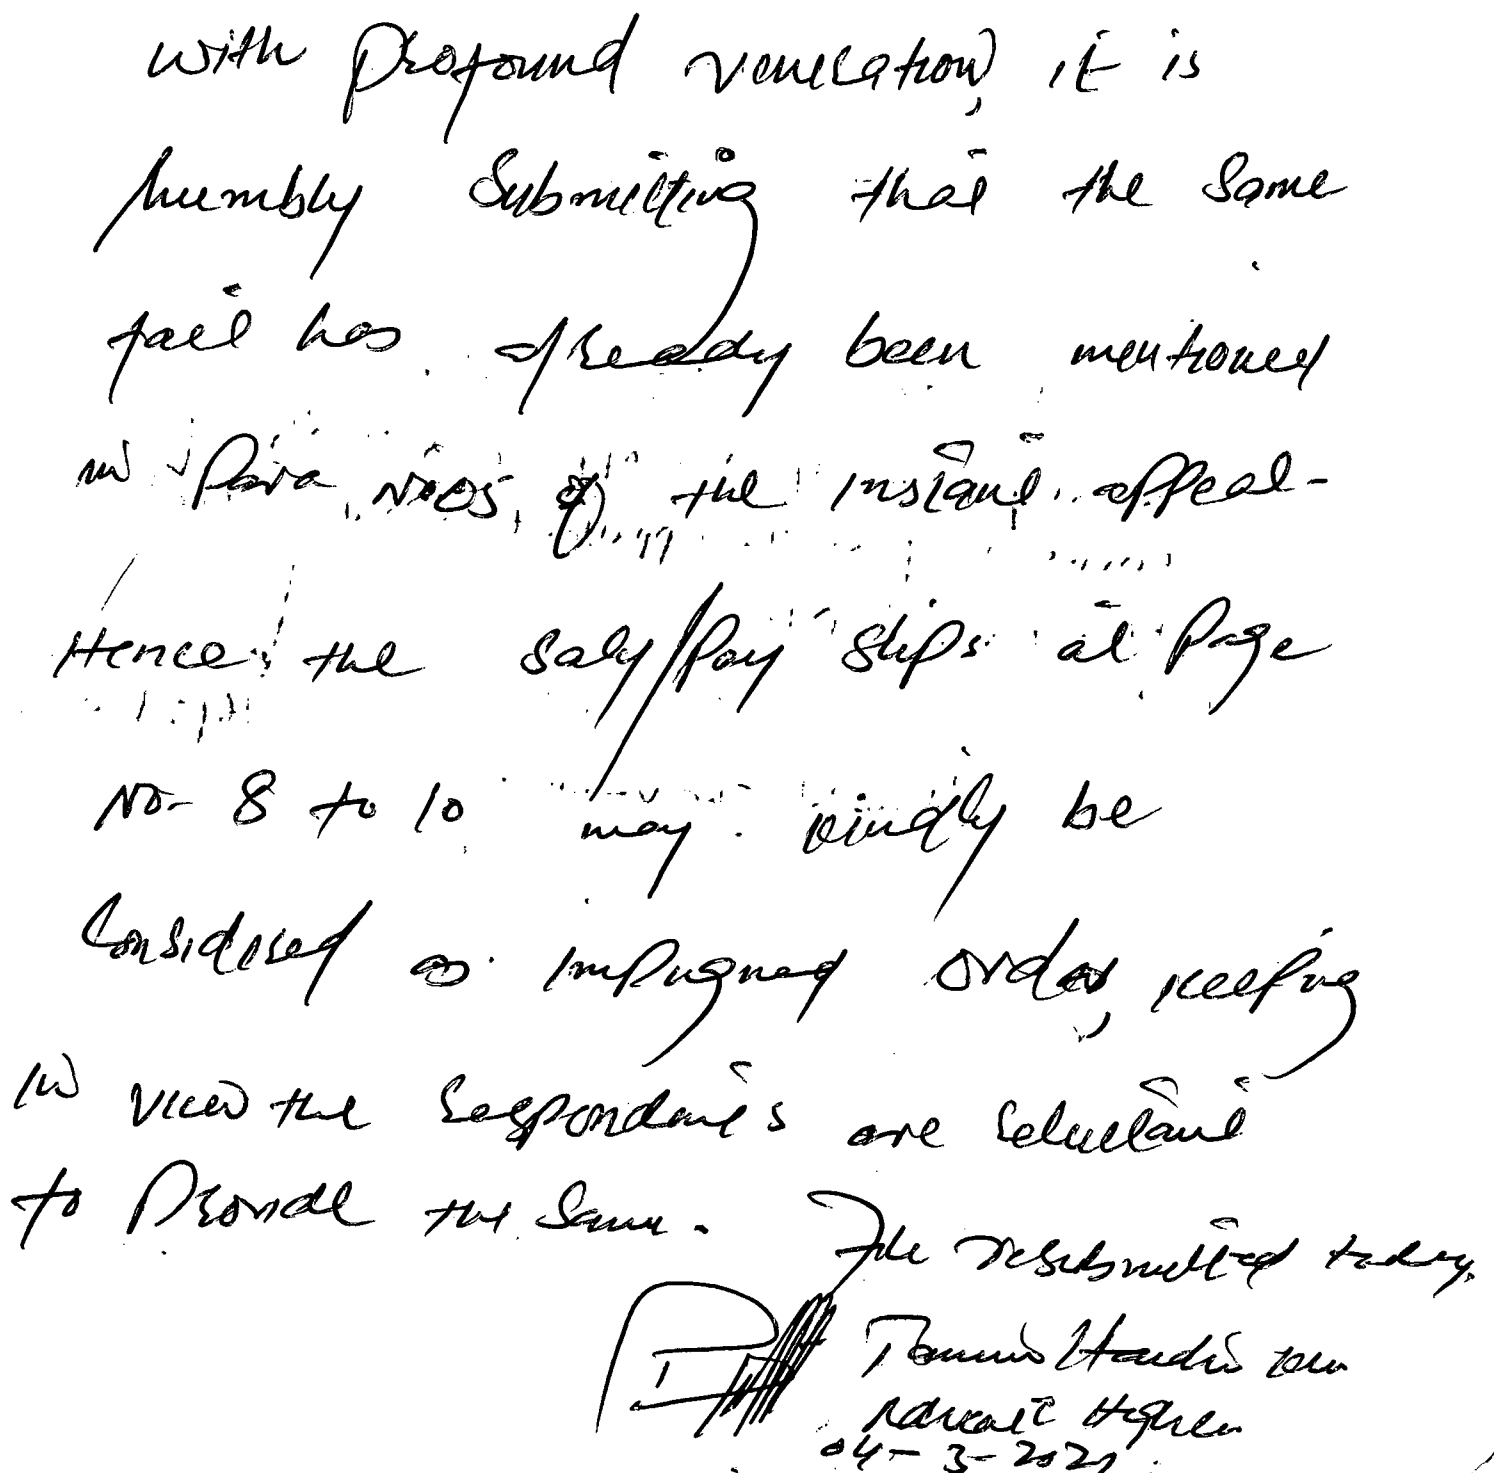 with profound veneration, it is
humbly submitting that the same
fact has already been mentioned
in Para No 05 of the instant appeal-
Hence the saly/Pay slips at Page
No- 8 to 10 may kindly be
Considered as impugned order, keeping
in view the respondents are reluctant
to Provide the same.
File resubmitted today.
Advocate High
04-3-202